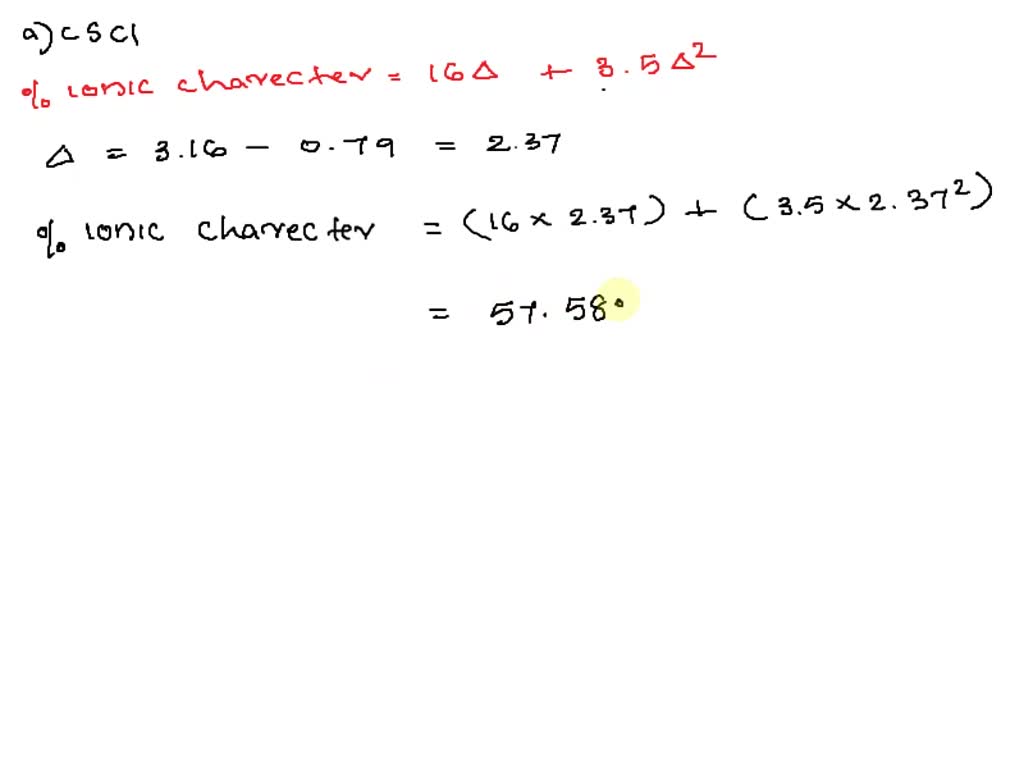 a) CSCl
% ionic charecter = 16Δ + 3.5Δ²
Δ = 3.16 - 0.79 = 2.37
% ionic charecter = (16 × 2.37) + (3.5 × 2.37²)
= 57.58